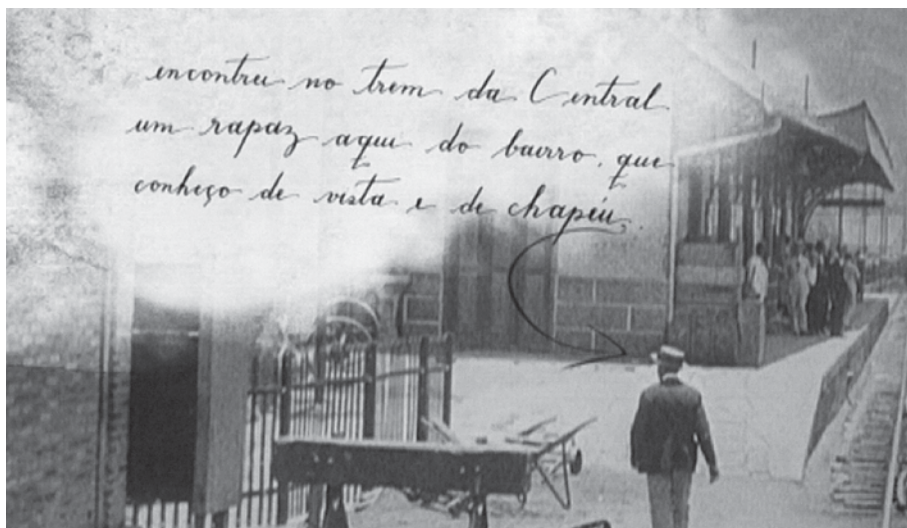 encontrei no trem da Central
um rapaz aqui do bairro, que
conheço de vista e de chapéu.